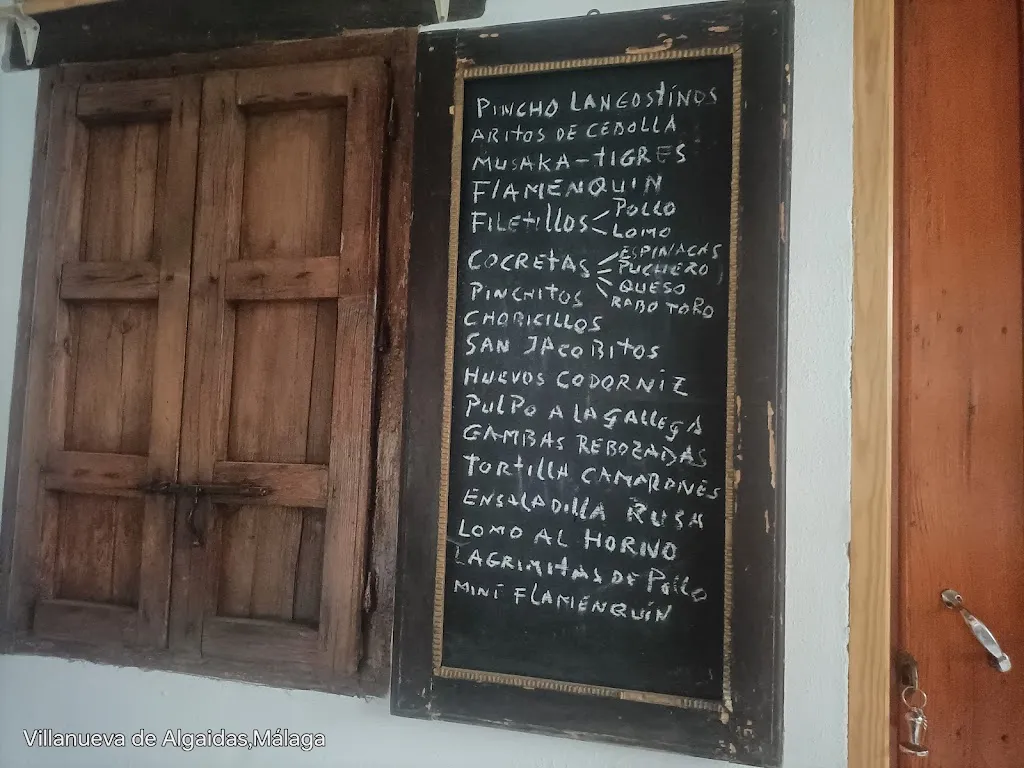 PINCHO LANGOSTINOS
ARITOS DE CEBOLLA
MUSAKA-TIGRES
FLAMENQUIN
FILETILLOS
POLLO
LOMO
COCRETAS
ESPINACAS
PUCHERO
QUESO
RABO TORO
PINCHITOS
CHORICILLOS
SAN JACOBITOS
HUEVOS CODORNIZ
PULPO A LA GALLEGA
GAMBAS REBOZADAS
TORTILLA CAMARONES
ENSALADILLA RUSA
LOMO AL HORNO
LAGRIMITAS DE POLLO
MINI FLAMENQUÍN
Villanueva de Algaidas,Málaga